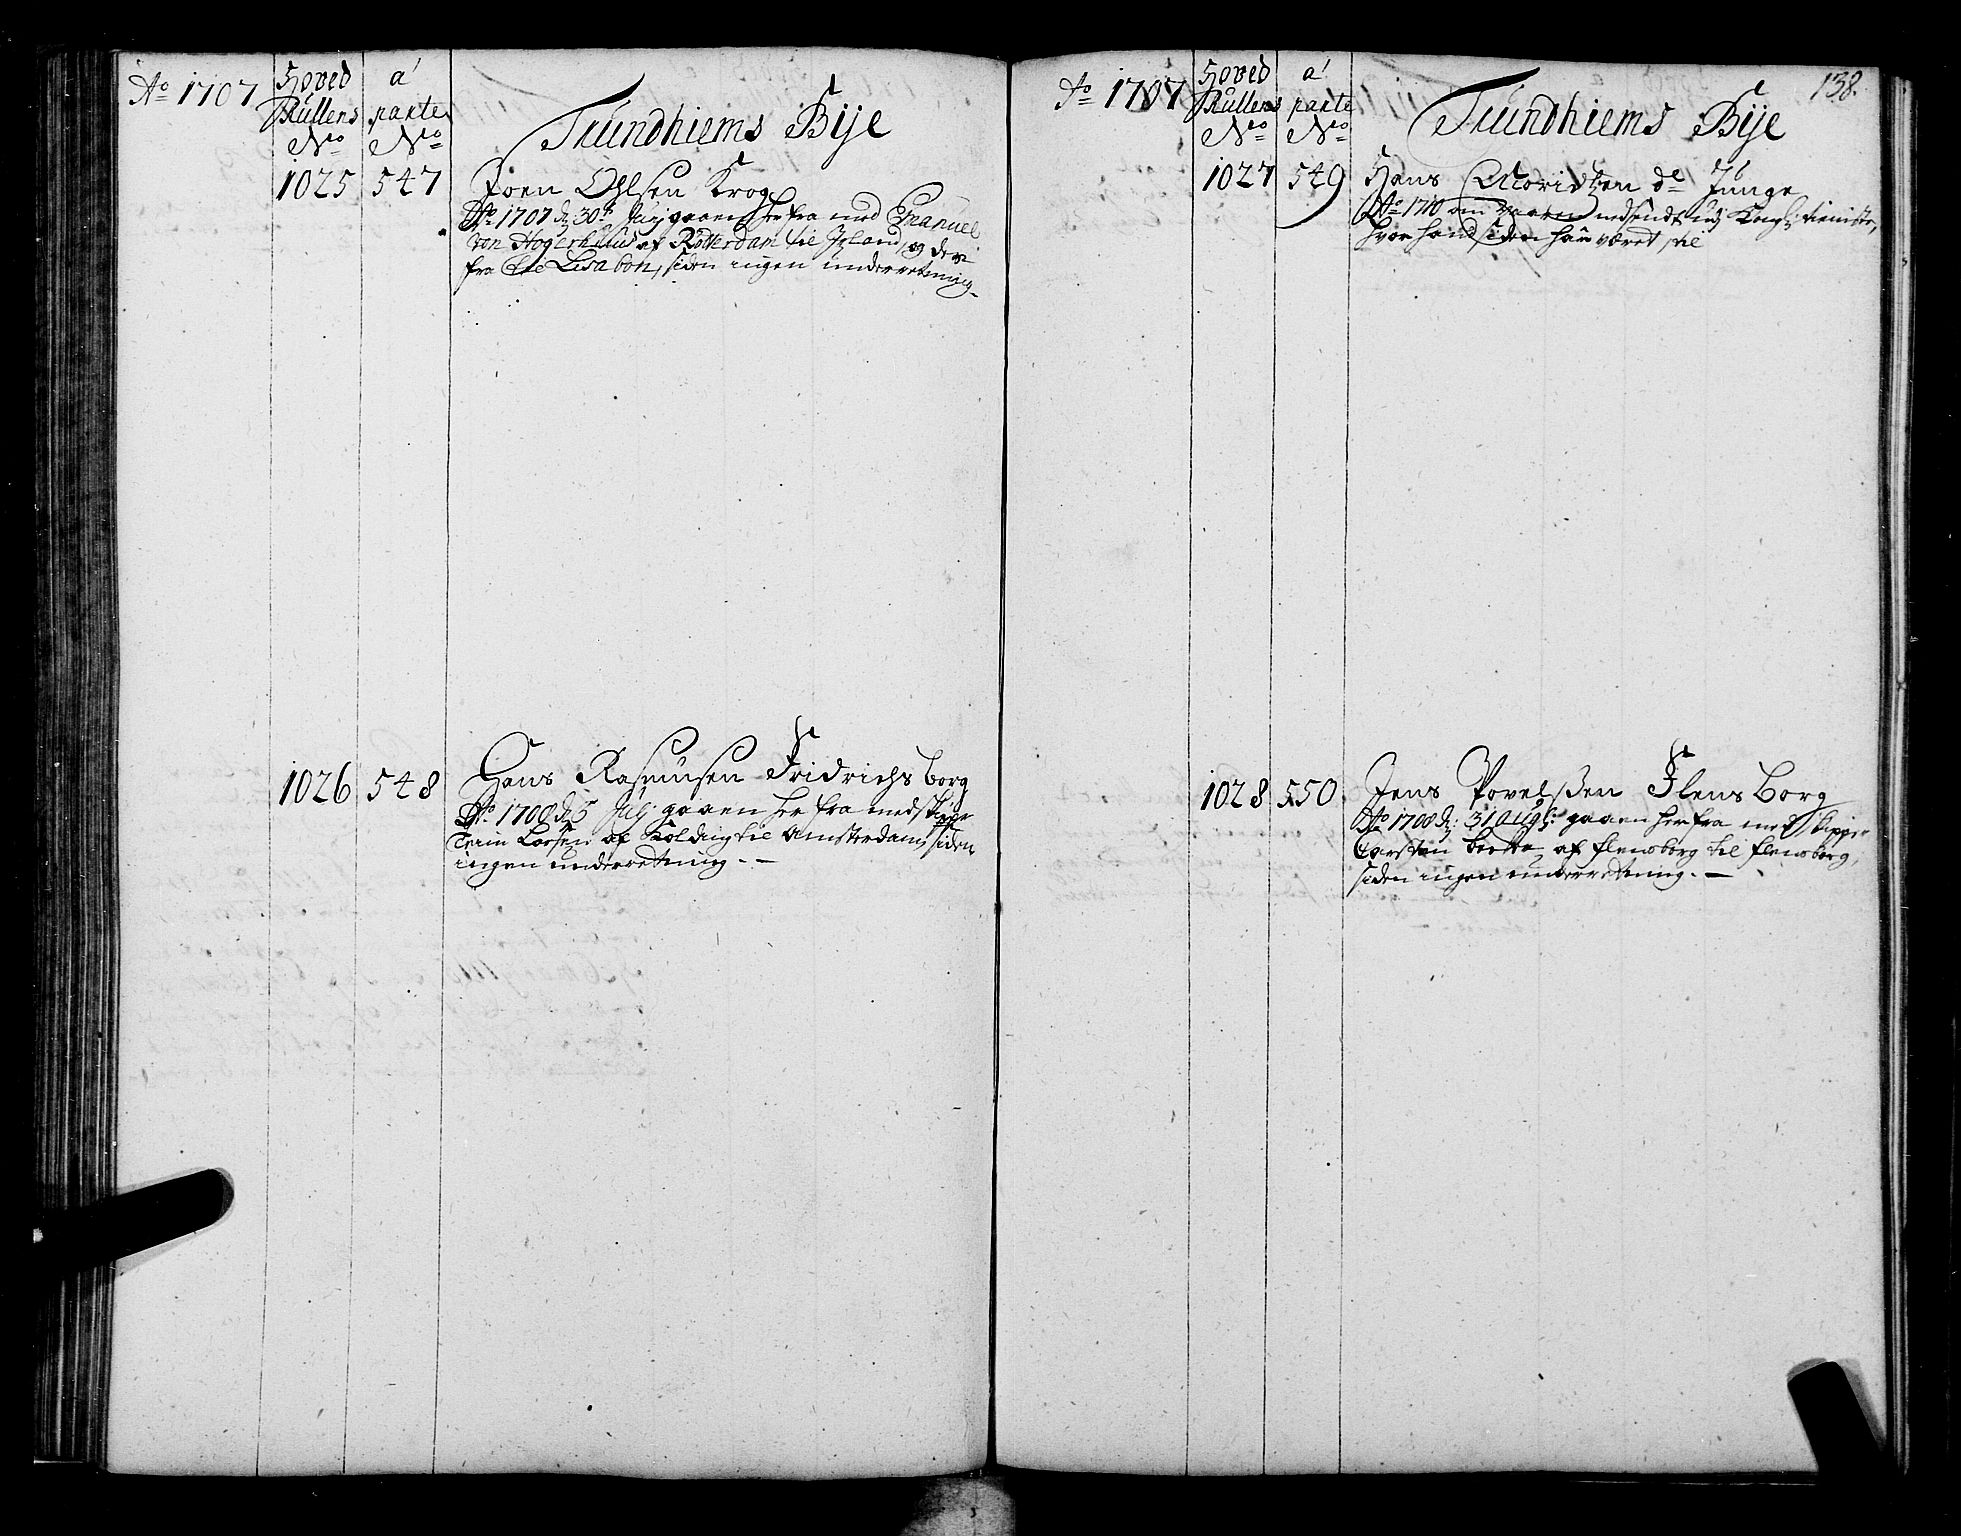 Ao 1707
Hoved
Rullens
No
a'
parte
No
Trundhiems Bije
1025 547 Joen Ohlsen Krog
Ao 1707 d 30t Julij gaaen her fra med Emanuel
von af Rotterdam til Jrland, og der
fra til Lisabon, siden ingen underretning
1026 548 Hans Rasmusen Fridrichsborg
Ao 1708 d 5 Julij gaaen her fra med Skipper
Larsen af Kolding til Amsterdam, siden
ingen underretning. -
Ao 1707
Hoved
Rullens
No
a'
parte
No
138.
Trundhiems Bije
1027 549 Hans Moridtzen de Junge
Ao 1710 om Vaaren nedsendt udj Kongl: tieniste,
hvor hand siden har været
1028 550 Jens Povelsen Flensborg
Ao 1708 d: 31 aug: gaaen her fra med Skipper
Carsten af flensborg til flensborg,
siden ingen underretning. -